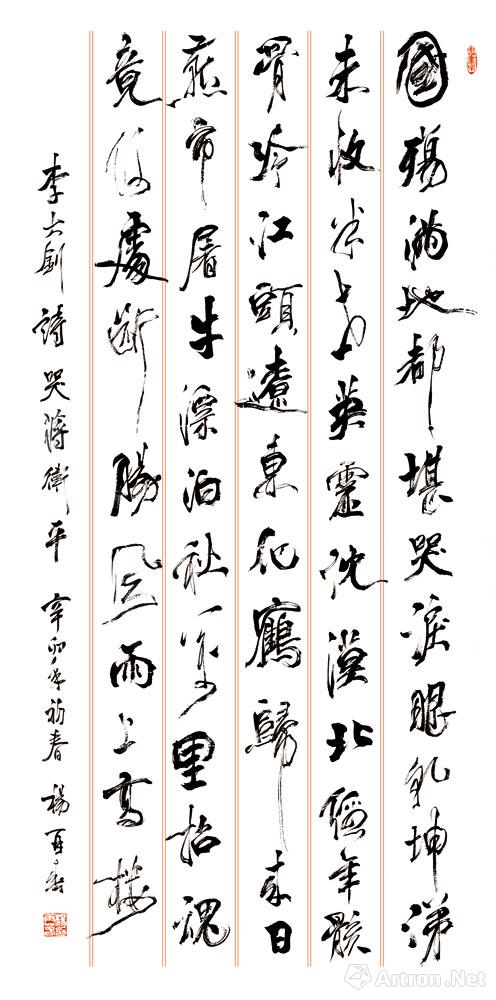 國殤滿地都堪哭淚眼乾坤涕
未收半世英靈沈漠北經年骸
骨冷江頭遼東化鶴歸來日
燕市屠牛漂泊秋萬里招魂
竟何處斷腸風雨上高樓
李大釗詩哭蔣衛平 辛卯年初春 楊再春
Artron.Net